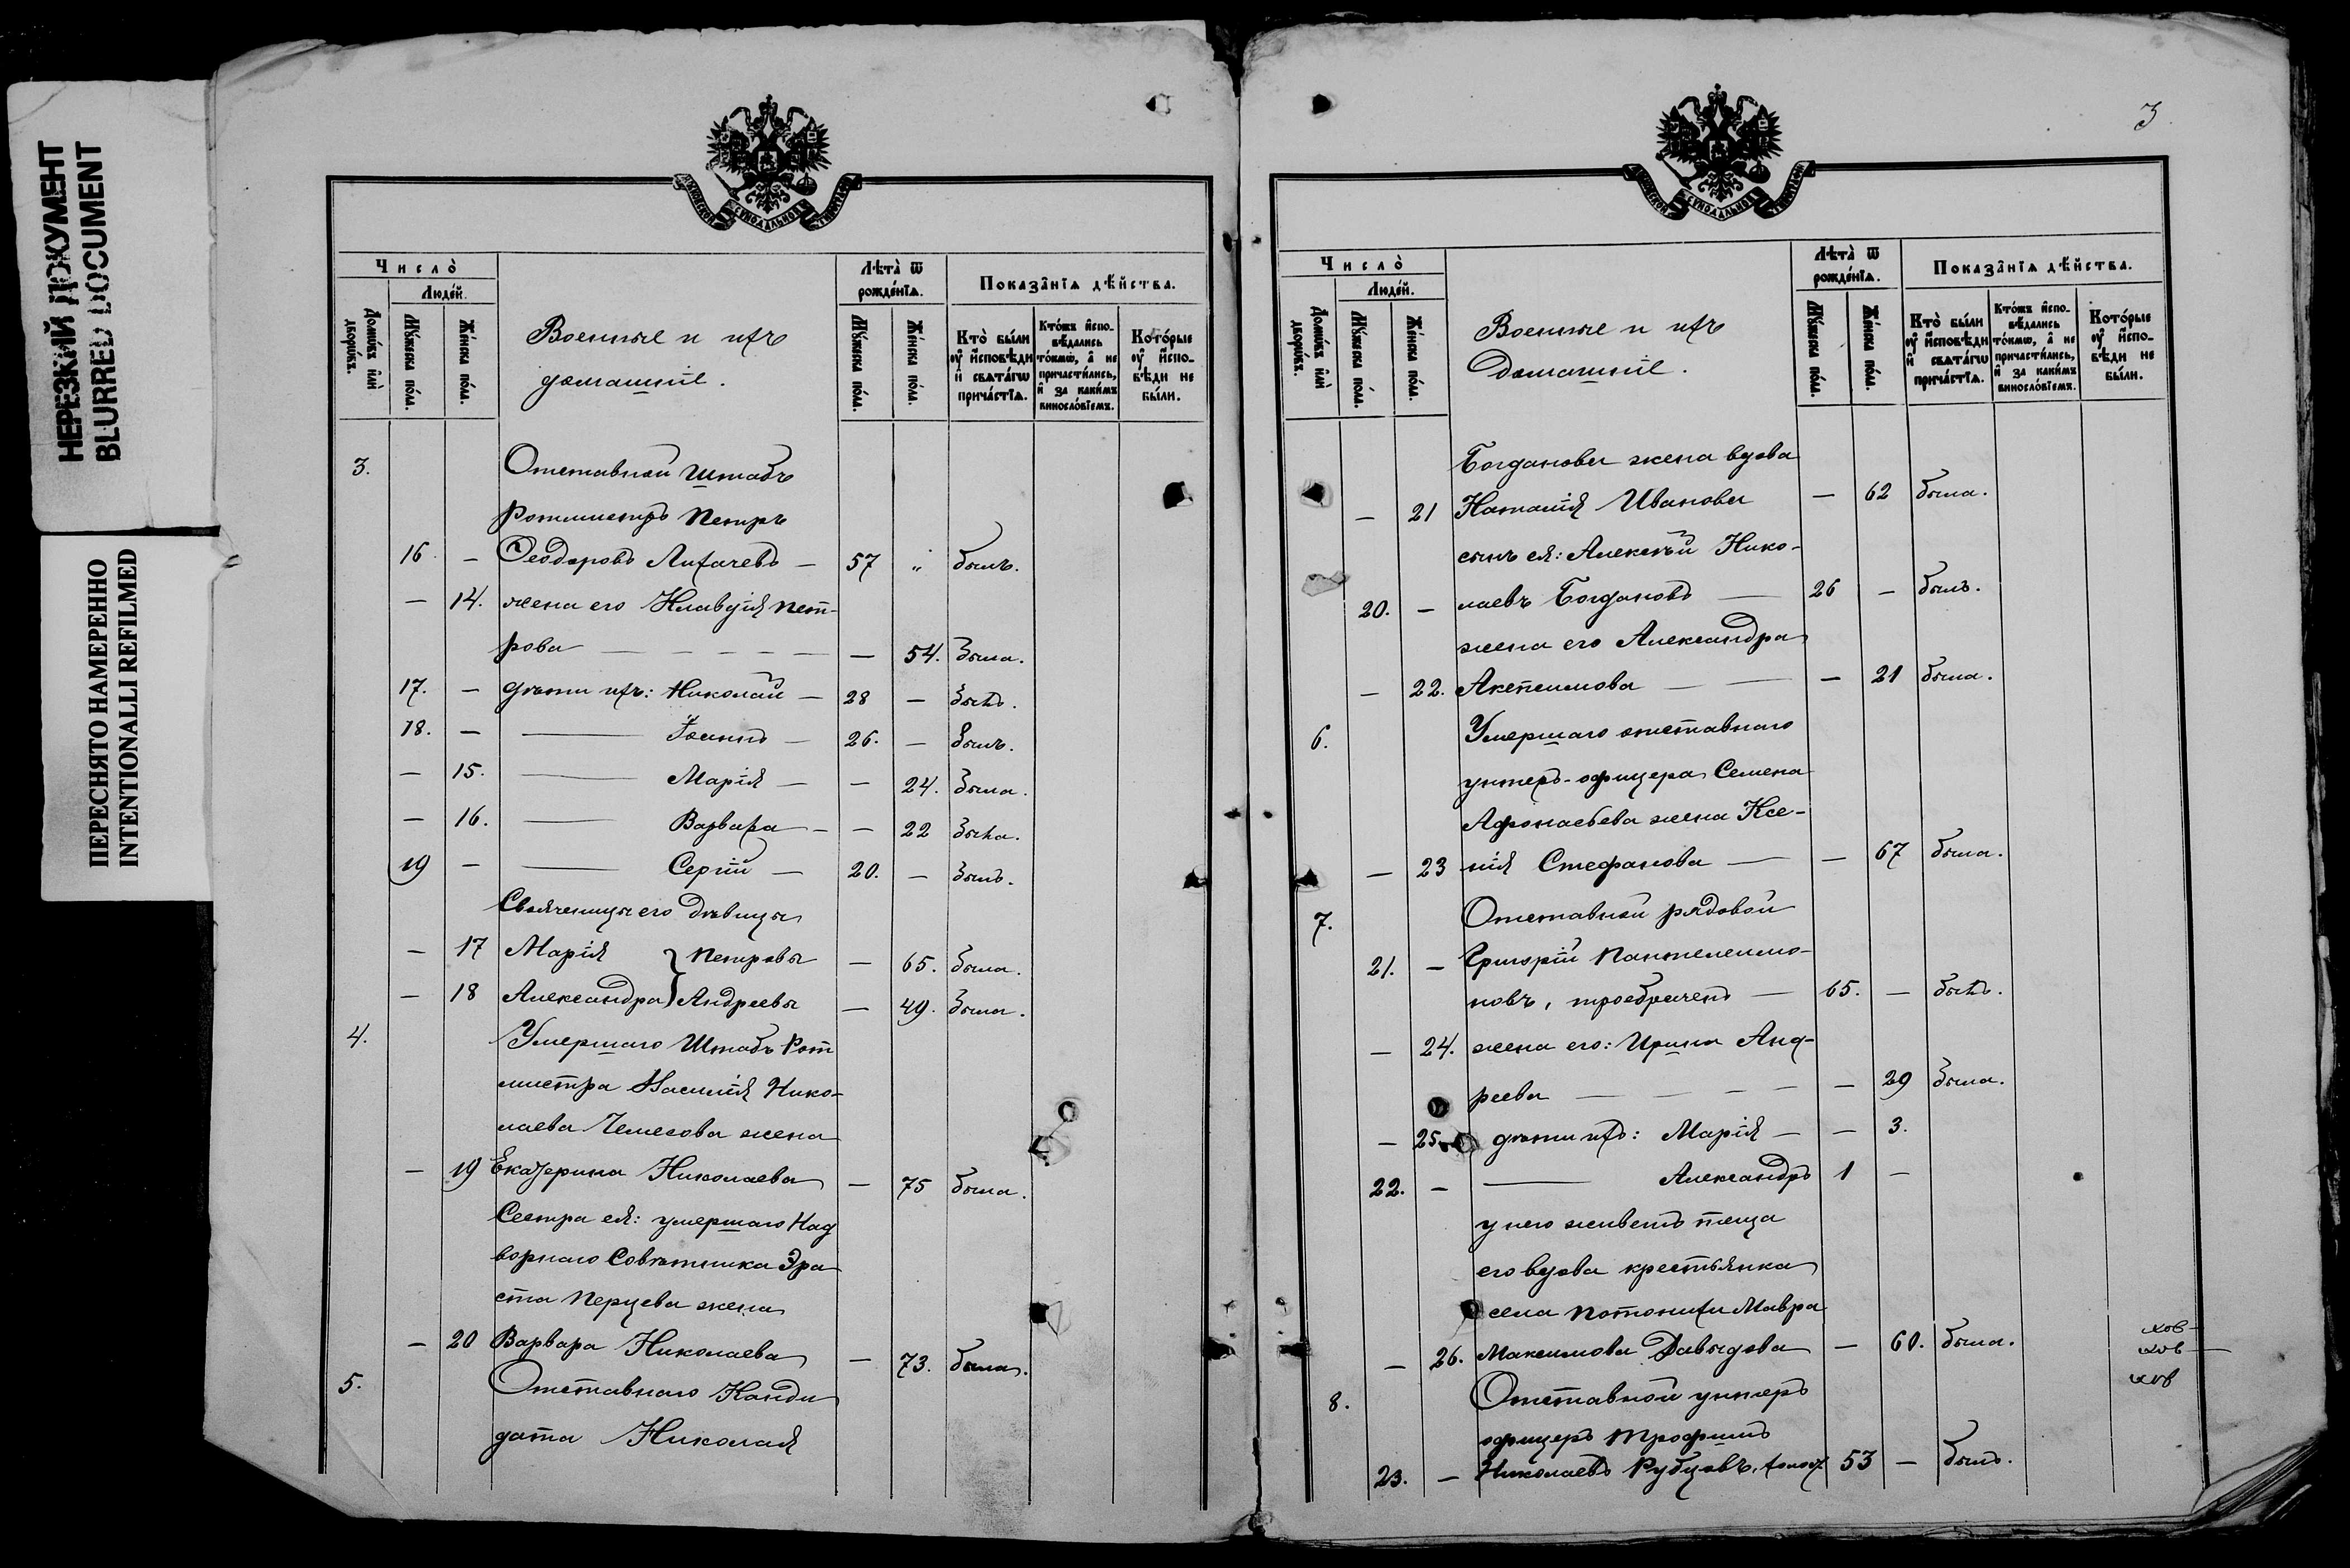 НЕРЕЗКИЙ ДОКУМЕНТ
BLURRED DOCUMENT
ПЕРЕСНЯТО НАМЕРЕННО
INTENTIONALLI REFILMED
МОСКОВСКОЙ СѴНОДАЛЬНОЙ ТИПОГРАФІИ
Число̀
Людéй.
Домѡ́въ и҆лѝ дворѡ́въ.
Мꙋ́жеска по́ла.
Же́нска по́ла.
Военные и ихъ
домашніе.
Лѣта̀ ѿ
рожде́нїѧ.
Мꙋ́жеска по́ла.
Же́нска по́ла.
Показа̑нїѧ дѣ́йства.
Кто̀ бы́ли ᲂу҆ и҆сповѣ́ди и҆ свѧта́гѡ прича́стїѧ.
Кто́жъ и҆спо- вѣ́дались то́кмѡ, а҆ не причасти́лись, и҆ за каки́мъ винослóвїемъ.
Кото́рые ᲂу҆ и҆спо- вѣ́ди не бы́ли.
3. Отставной Штабъ
Ротмистръ Петръ
16 – Ѳеодоровъ Лихачевъ – 57 „ былъ.
– 14. жена его Клавдія Пет-
рова – – 54. была.
17. – дѣти ихъ: Николай – 28 – былъ.
18. – — Іоаннъ – 26. – былъ.
– 15. — Марія – – 24. была.
– 16. — Варвара – – 22 была.
19 – — Сергій – 20. – былъ.
Свояченицы его дѣвицы
– 17 Марія } Петровы – 65. была.
– 18 Александра } Андреевы – 49. была.
4. Умершаго Штабъ Рот
мистра Василія Нико-
лаева Чемесова жена
– 19 Екатерина Николаева – 75 была.
Сестра ея: умершаго Над
ворнаго Совѣтника Эра
ста Перцева жена
– 20 Варвара Николаева – 73. была.
5. Отставнаго Канди
дата Николая
3
МОСКОВСКОЙ СѴНОДАЛЬНОЙ ТИПОГРАФІИ
Число̀
Людéй.
Домѡ́въ и҆лѝ дворѡ́въ.
Мꙋ́жеска по́ла.
Же́нска по́ла.
Военные и ихъ
Домашніе.
Лѣта̀ ѿ
рожде́нїѧ.
Мꙋ́жеска по́ла.
Же́нска по́ла.
Показа̑нїѧ дѣ́йства.
Кто̀ бы́ли ᲂу҆ и҆сповѣ́ди и҆ свѧта́гѡ прича́стїѧ.
Кто́жъ и҆спо- вѣ́дались то́кмѡ, а҆ не причасти́лись, и҆ за каки́мъ винослóвїемъ.
Кото́рые ᲂу҆ и҆спо- вѣ́ди не бы́ли.
Богданова жена вдова
– 21 Наталія Иванова – 62 была.
сынъ ея: Алексѣй Нико-
20. – лаевъ Богдановъ — 26 – былъ.
жена его Александра
– 22. Акепсимова — – 21 была.
6. Умершаго отставнаго
унтеръ-офицера Семена
Афонасьева жена Ксе-
– 23 нія Стефанова — – 67 была.
7. Отставной рядовой
21. – Григорій Пантелеимо-
новъ, троебраченъ — 65. – былъ.
– 24. жена его: Ирина Анд-
реева — – 29 была.
– 25. дѣти ихъ: Марія – – 3.
22. – — Александръ 1 –
у него живетъ теща
его вдова крестьянка
села Потонихи Мавра
– 26. Максимова Давыдова – 60. была.
8. Отставной унтеръ
офицеръ Трофимъ
23. – Николаевъ Рубцовъ, холост. 53 – былъ.